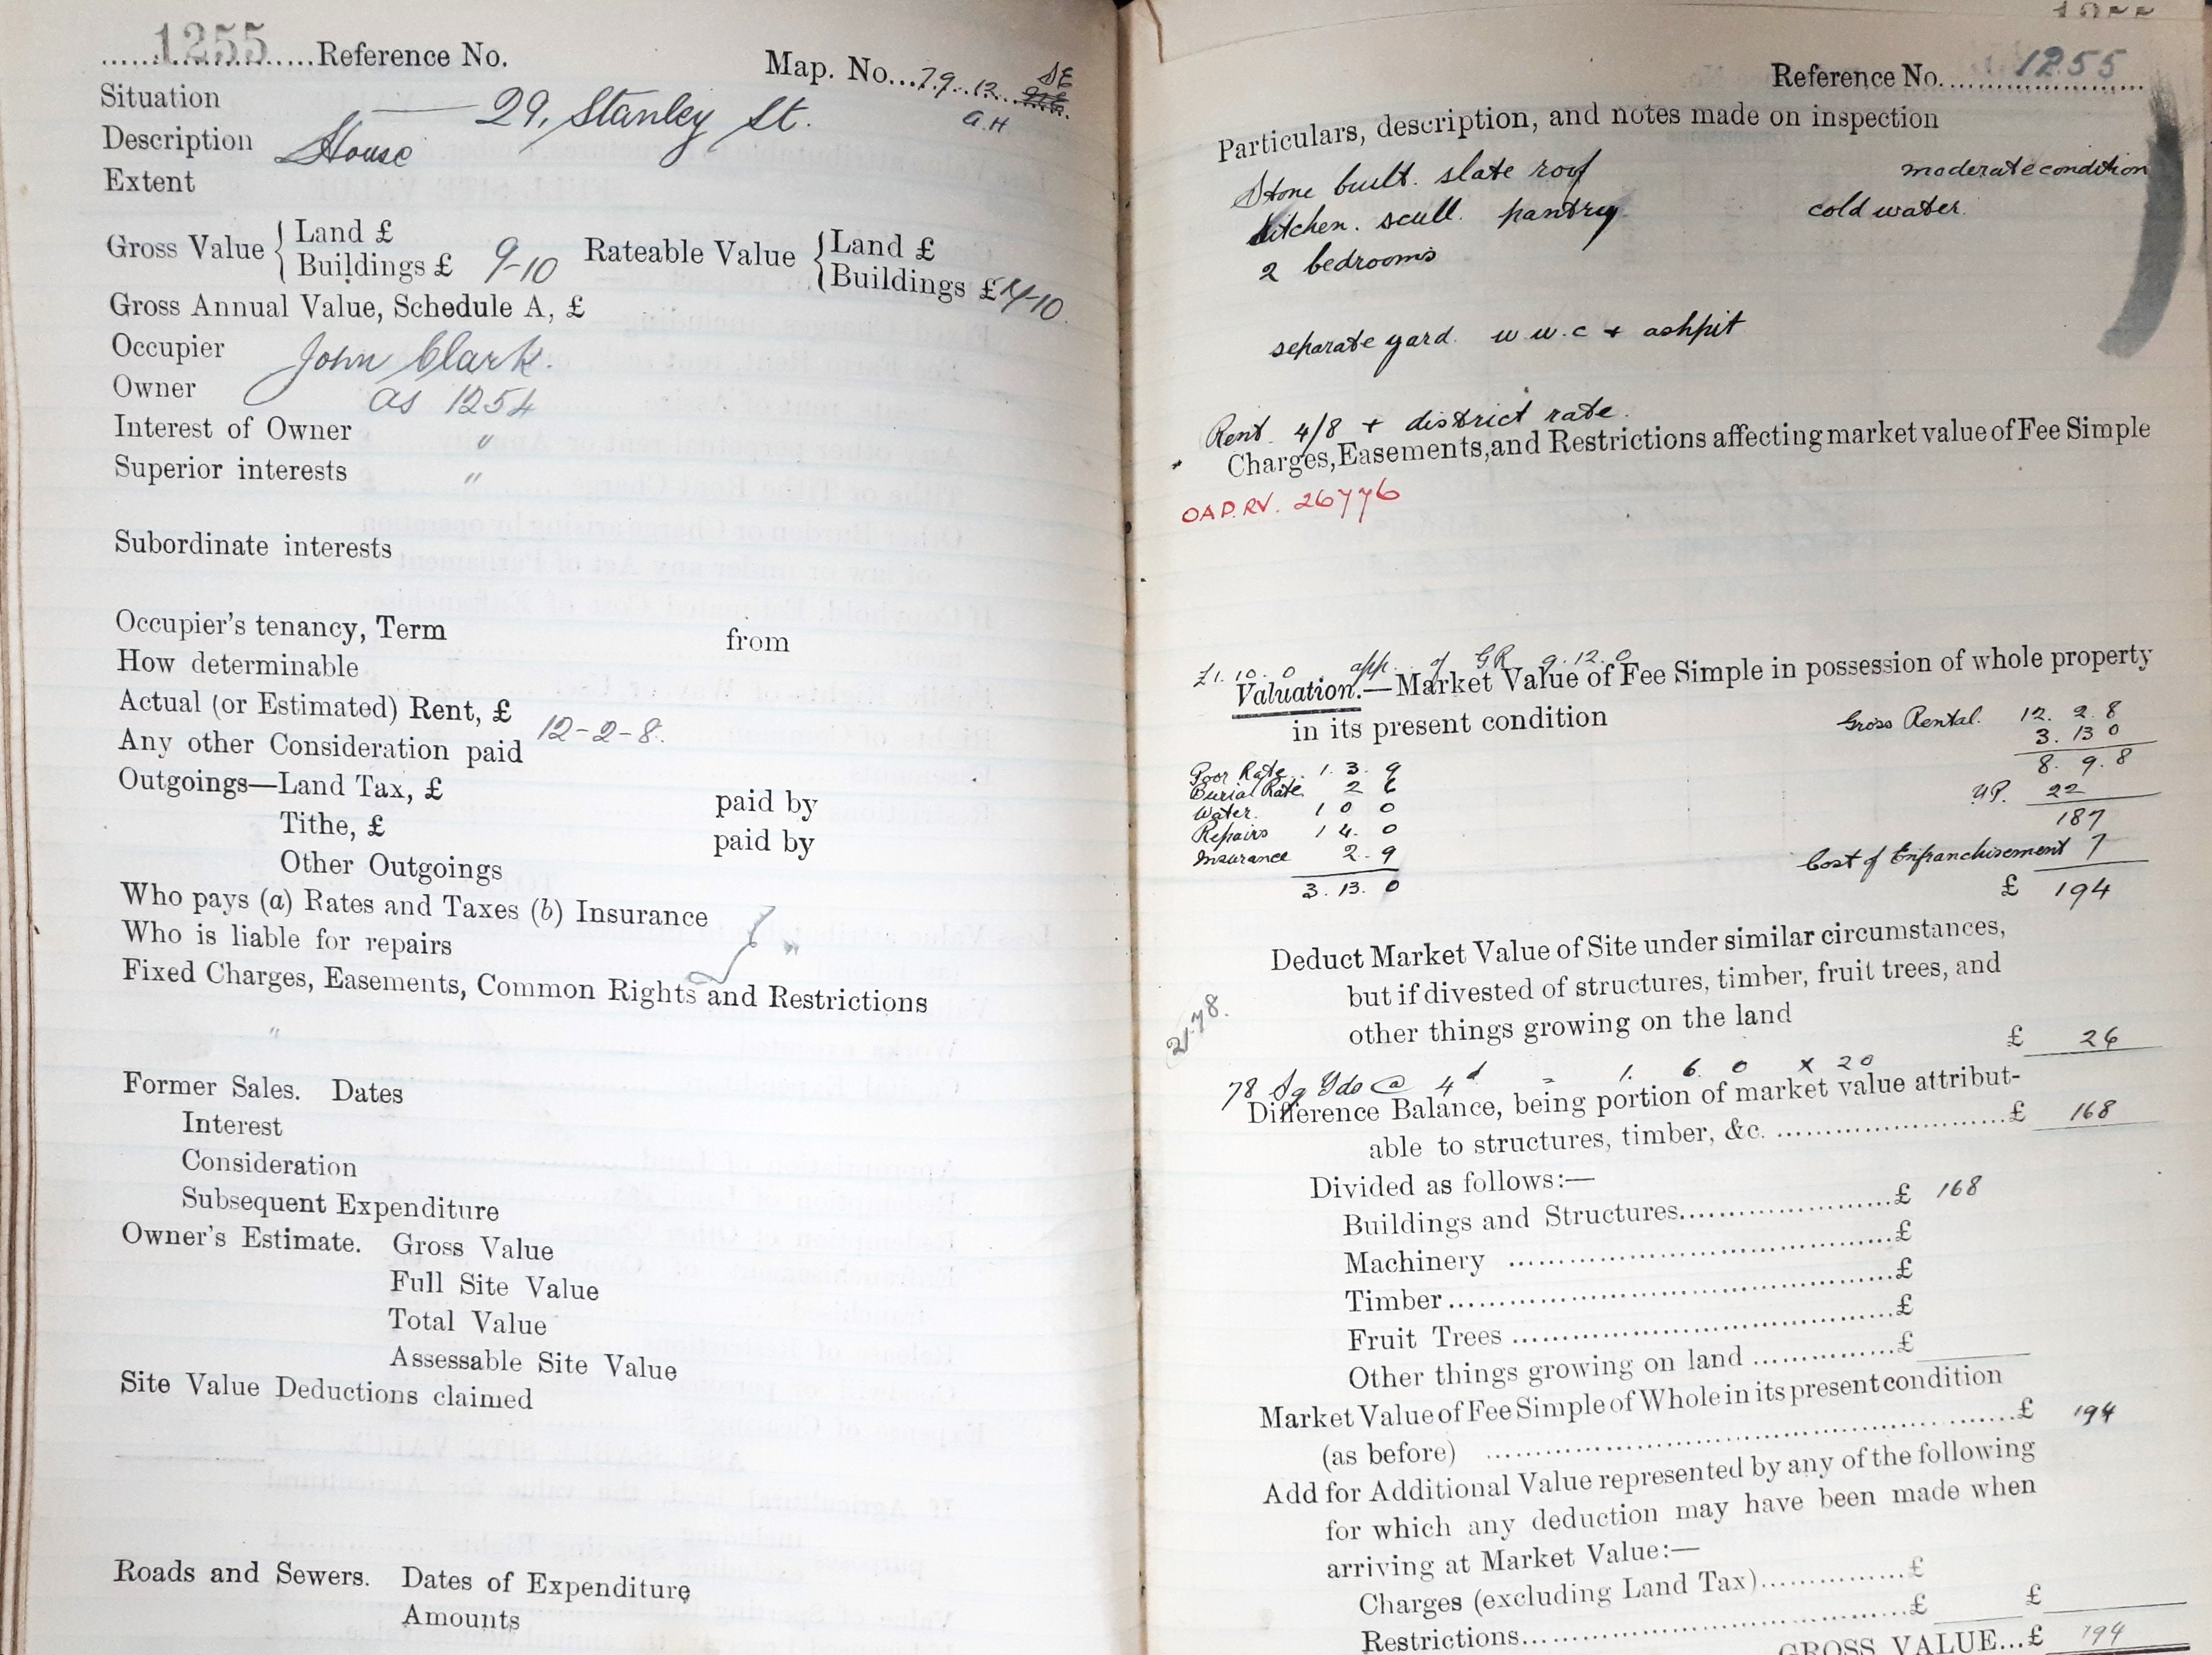 1255 Reference No. Map. No...79.12 SE
G.H
Situation 29, Stanley St.
Description House
Extent
Gross Value { Land £ Rateable Value { Land £
Buildings £ 9-10 Buildings £ -10
Gross Annual Value, Schedule A, £
Occupier John Clark.
Owner as 1254
Interest of Owner "
Superior interests "
Subordinate interests
Occupier's tenancy, Term from
How determinable
Actual (or Estimated) Rent, £ 12-2-8.
Any other Consideration paid
Outgoings—Land Tax, £ paid by
Tithe, £ paid by
Other Outgoings
Who pays (a) Rates and Taxes (b) Insurance
Who is liable for repairs } "
Fixed Charges, Easements, Common Rights and Restrictions
"
Former Sales. Dates
Interest
Consideration
Subsequent Expenditure
Owner's Estimate. Gross Value
Full Site Value
Total Value
Assessable Site Value
Site Value Deductions claimed
Roads and Sewers. Dates of Expenditure
Amounts
Reference No. 1255
Particulars, description, and notes made on inspection
Stone built. slate roof moderate condition
kitchen. scull. pantry. cold water.
2 bedrooms
separate yard. w w.c + ashpit
Rent 4/8 + district rate.
Charges, Easements, and Restrictions affecting market value of Fee Simple
OAP.RV. 26776
£1.10.0 app. of GR 9.12.0
Valuation.—Market Value of Fee Simple in possession of whole property
in its present condition Gross Rental. 12. 2. 8
3. 13 0
Poor Rate. 1. 3. 9 8. 9. 8
Burial Rate. 2 6 YP. 22
Water. 1 0 0 187
Repairs 1 4. 0
Insurance 2. 9 Cost of Enfranchisement 7
3. 13. 0 £ 194
Deduct Market Value of Site under similar circumstances,
but if divested of structures, timber, fruit trees, and
other things growing on the land £ 26
21.78.
78 Sq Yds @ 4d = 1. 6. 0 x 20
Difference Balance, being portion of market value attribut-
able to structures, timber, &c. £ 168
Divided as follows:—
Buildings and Structures £ 168
Machinery £
Timber £
Fruit Trees £
Other things growing on land £
Market Value of Fee Simple of Whole in its present condition
(as before) £ 194
Add for Additional Value represented by any of the following
for which any deduction may have been made when
arriving at Market Value:—
Charges (excluding Land Tax) £
Restrictions £ £
GROSS VALUE...£ 194